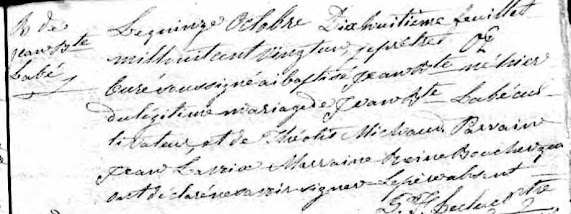 B de
Jean Bte
Labé
Le quinze Octobre Dixhuitième feuillet
mil huit cent vingt un, je prêtre
Curé soussigné ai baptisé Jean Bte né hier
du légitime mariage de Jean Bte Labé cul-
tivateur, et de Théotis Michaud Parrain
Jean Lavoie Marraine Reine Boucher qui
ont déclaré ne savoir signer. Le père absent
Leclerc ptre